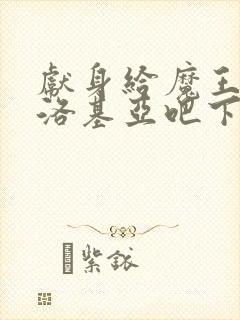 獻身給魔王
洛基亞吧下
紫銥